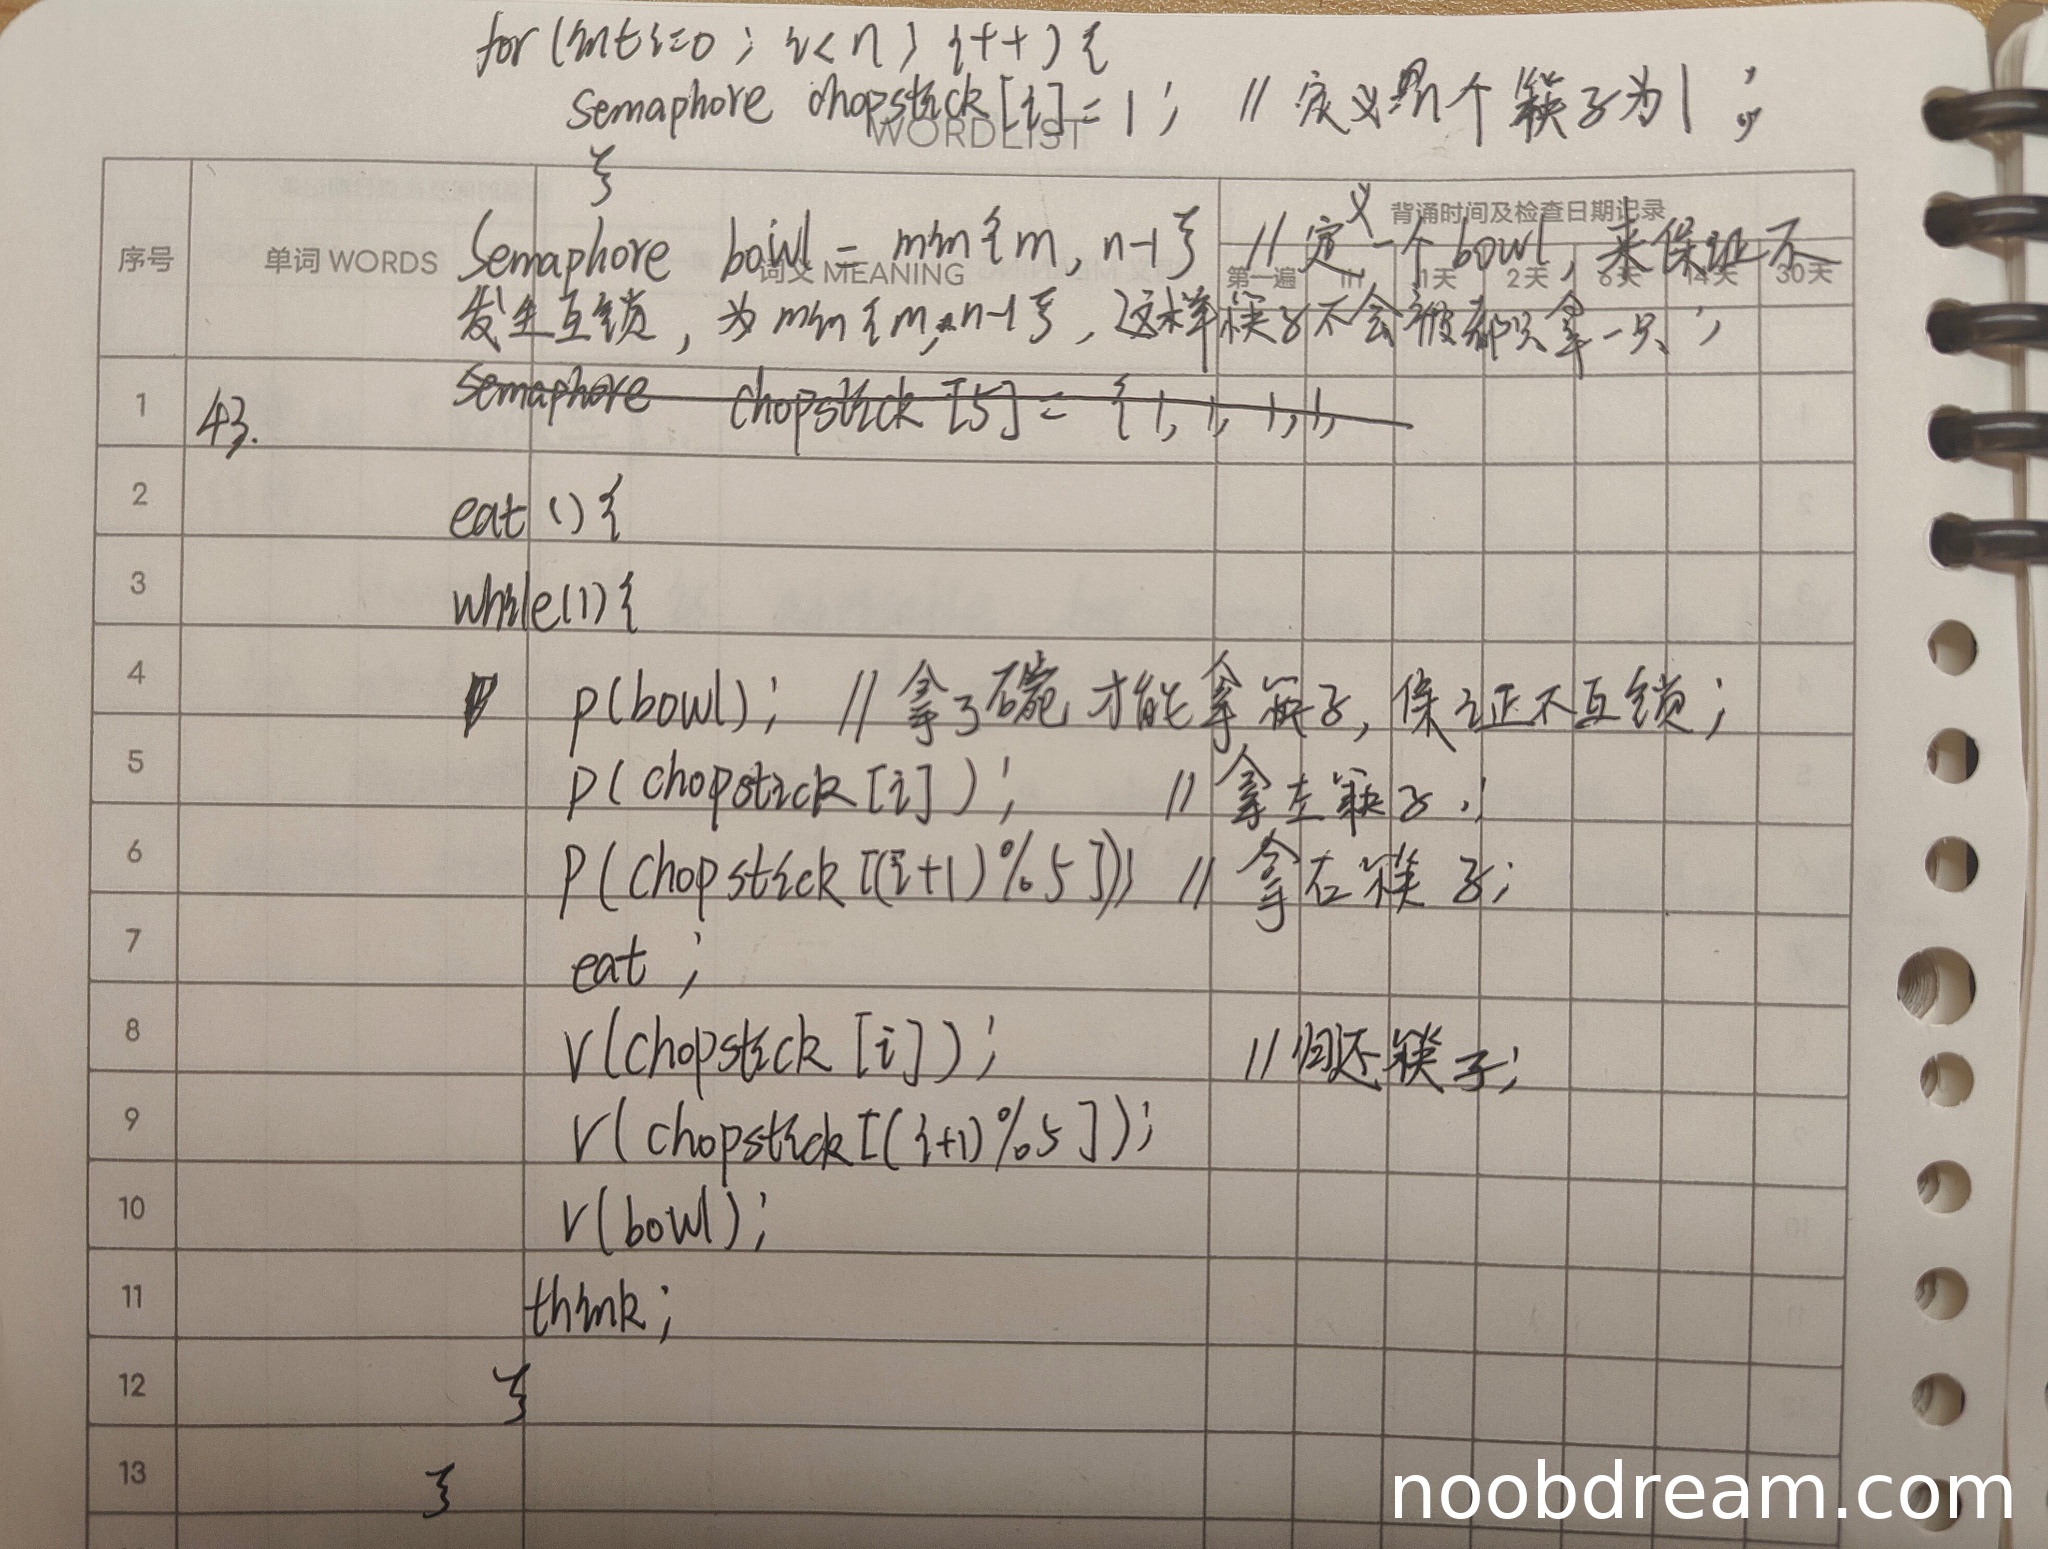 for(int i=0; i<n; i++){
semaphore chopstick[i]=1; //定义n个筷子为1;
WORDLIST
}
序号 单词 WORDS 词义 MEANING 背诵时间及检查日期记录
第一遍 1H 1天 2天 6天 14天 30天
Semaphore bowl = min{m, n-1} //定义一个bowl, 来保证不
发生互锁, 为min{m,n-1}, 这样筷子不会被都只拿一只;
1 43. semaphore chopstick[5]={1, 1, 1, 1,
2 eat(){
3 while(1){
4 p(bowl); //拿了碗才能拿筷子, 保证不互锁;
5 p(chopstick[i]); //拿左筷子;
6 p(chopstick[(i+1)%5]); //拿右筷子;
7 eat;
8 v(chopstick[i]); //归还筷子;
9 v(chopstick[(i+1)%5]);
10 v(bowl);
11 think;
12 }
13 }
noobdream.com